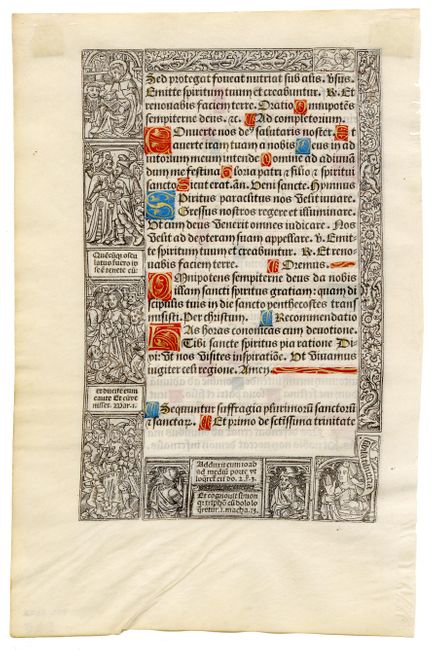 Sed protegat foveat nutriat sub alis. Vsus.
Emitte spiritum tuum et creabuntur. R. Et
renovabis faciem terre. Oratio Omnipotēs
sempiterne deus. ꝛc. Ad completorium.
COnuerte nos deꝰ salutaris noster. Et
auerte iram tuam a nobis Deus in ad
iutorium meum intende Domine ad adiuuā
dum me festina Gloria patri ⁊ filio ⁊ spiritui
sancto Sicut erat. añ. Veni sancte. Hymnus
SPiritus paraclitus nos velit iuuare.
Gressus nostros regere et illuminare.
Vt cum deus venerit omnes iudicare. Nos
velit ad dexteram suam appellare. v. Emit-
te spiritum tuum et creabuntur. R. Et reno-
uabis faciem terre. Oremus.
OMnipotens sempiterne deus da nobis
illam sancti spiritus gratiam: quam di
scipulis tuis in die sancto penthecostes trans
misisti. Per christum. Recommendatio
HAs horas canonicas cum deuotione.
Tibi sancte spiritus pia ratione Di
xi: vt nos visites inspiratiōe. Vt viuamus
iugiter celi regione. Amen
Sequuntur suffragia plurimorū sanctorū
⁊ sanctaꝝ. Et primo de sctissima trinitate
Quēcūqꝫ oscu
latus fuero ip
se ē tenete eū:
et ducite eum
caute Et cū ve
nisset. Mar. i.
Adduxit eum ioab
ad mediū porte vt
loqret ei ī do. 2. ꝶ. 3.
Et cognouit simon
qꝛ triphō cū dolo lo
qretur. i. macha. 13.